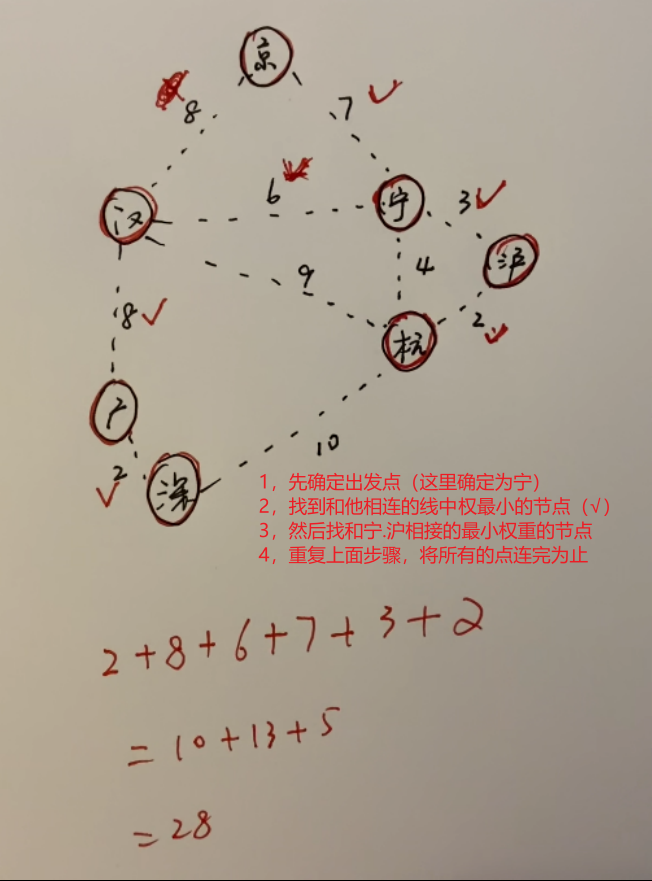 京
8
7
汉
6
宁
3
沪
4
9
2
杭
8
广
2
深
10
1，先确定出发点（这里确定为宁）
2，找到和他相连的线中权最小的节点（√）
3，然后找和宁.沪相接的最小权重的节点
4，重复上面步骤，将所有的点连完为止
2+8+6+7+3+2
=10+13+5
=28